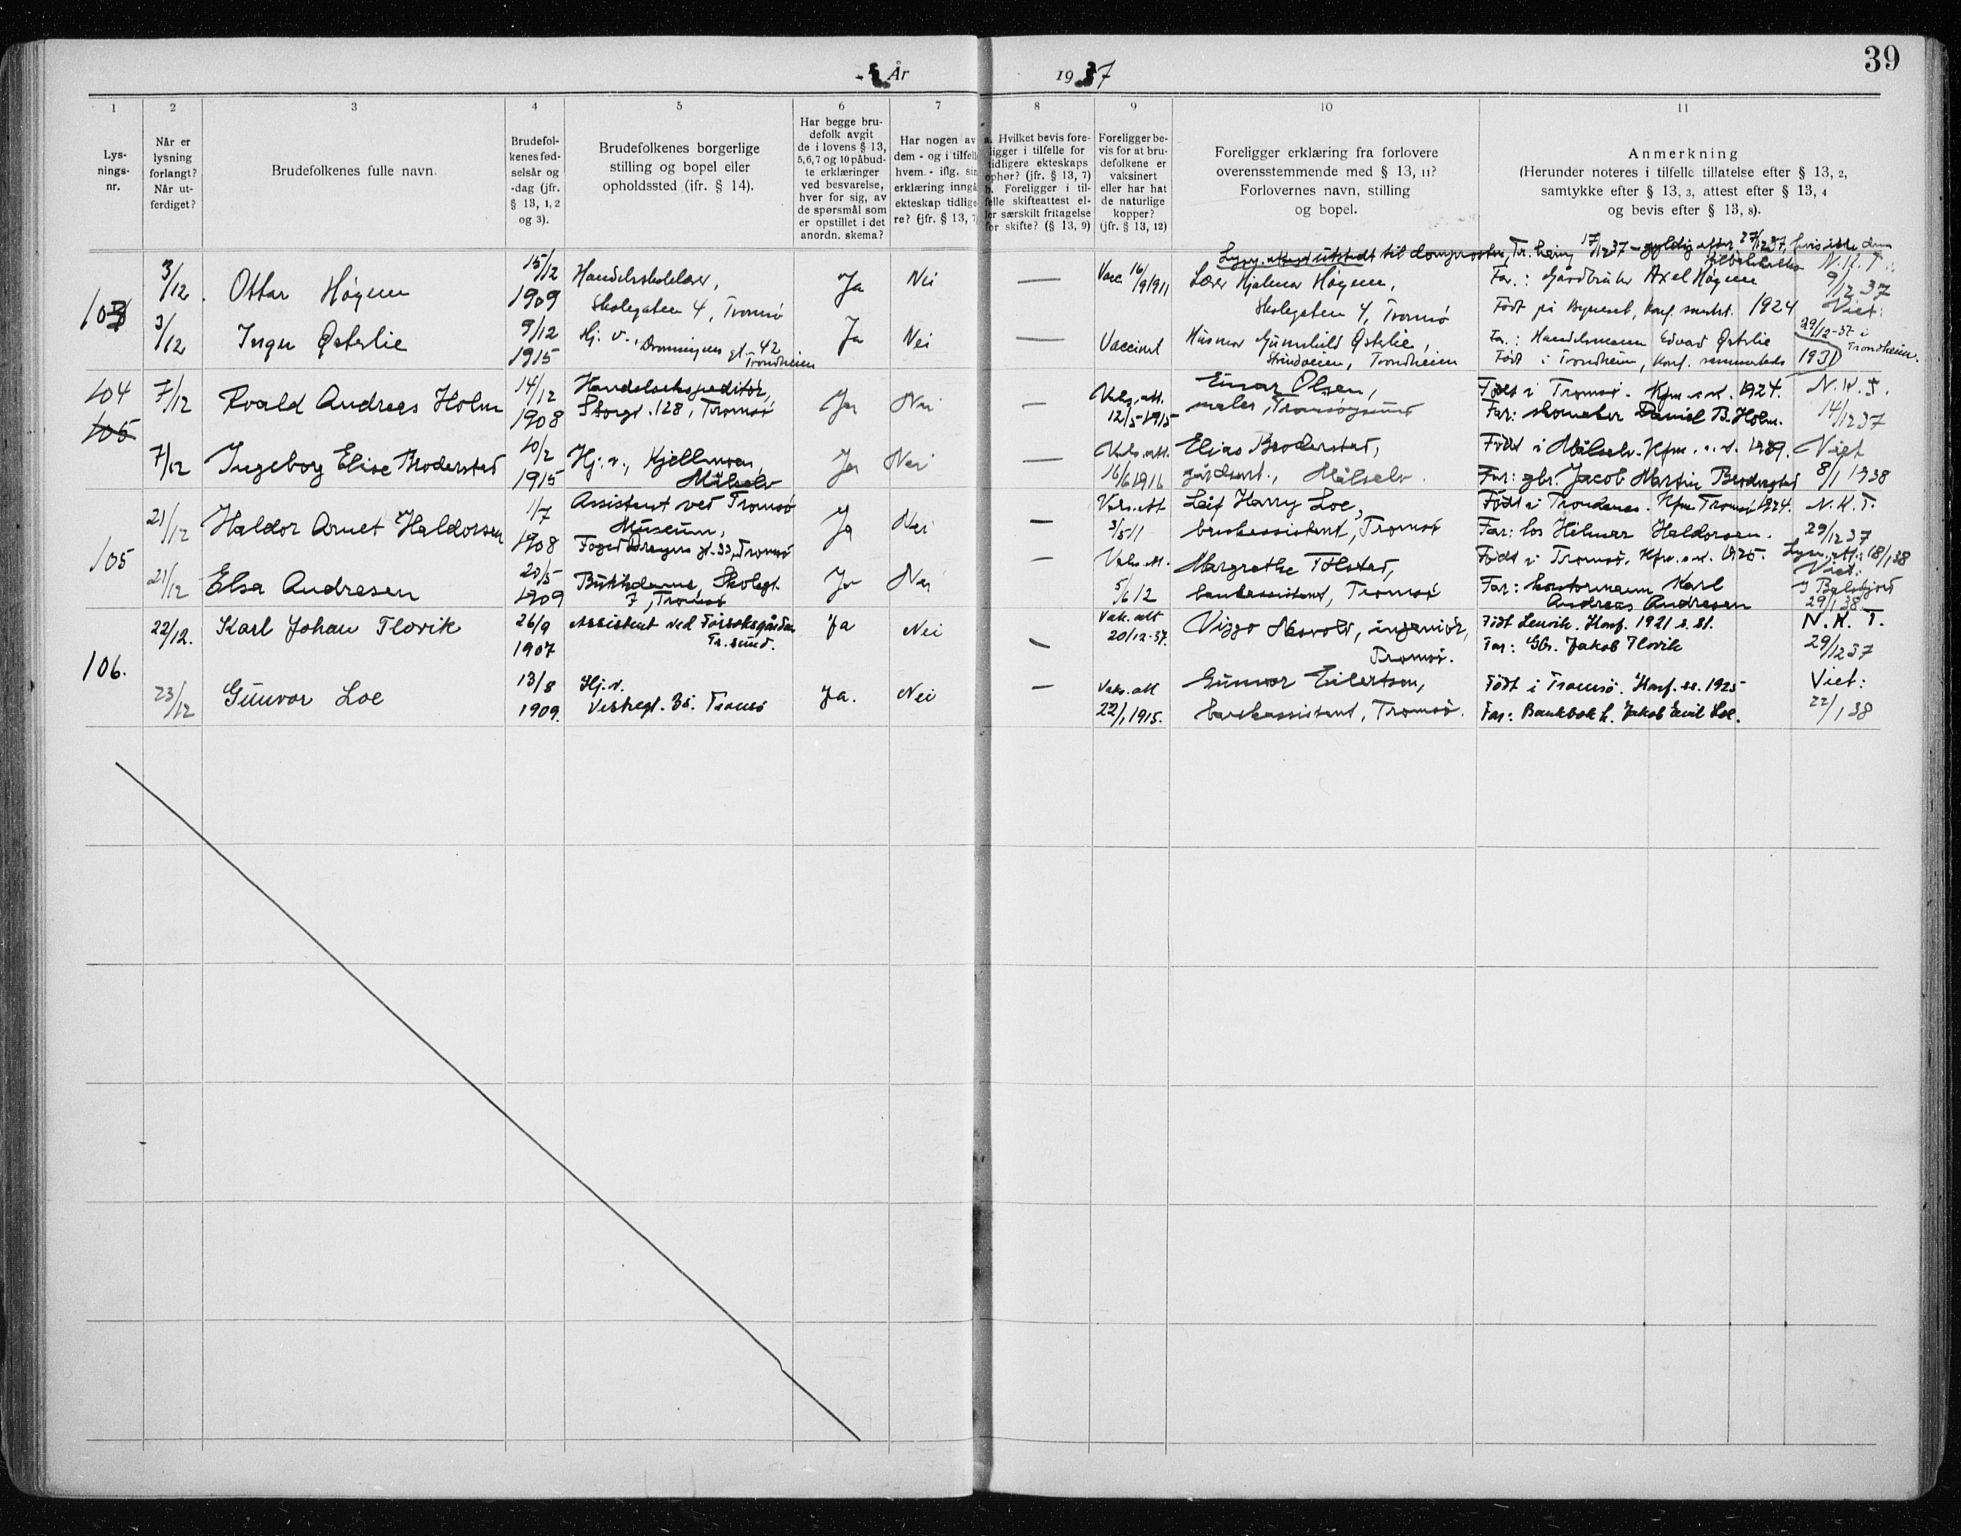 39
År 1937
1 2 3 4 5 6 7 8 9 10 11
Lys-
nings-
nr.
Når er
lysning
forlangt?
Når ut-
ferdiget?
Brudefolkenes fulle navn.
Brudefol-
kenes fød-
selsår og
-dag (jfr.
§ 13, 1, 2
og 3).
Brudefolkenes borgerlige
stilling og bopel eller
opholdssted (ifr. § 14).
Har begge bru-
defolk avgit
de i lovens § 13,
5, 6, 7 og 10 påbud-
te erklæringer
ved besvarelse,
hver for sig, av
de spørsmål som
er opstillet i det
anordn. skema?
Har nogen av
dem - og i tilfelle
hvem - iflg. sin
erklæring inngå
ekteskap tidlige-
re? (jfr. § 13, 7)
a. Hvilket bevis fore-
ligger i tilfelle for
tidligere ekteskaps
ophør? (jfr. § 13, 7)
b. Foreligger i til-
felle skifteattest el-
ler særskilt fritagelse
for skifte? (§ 13, 9)
Foreligger be-
vis for at bru-
defolkene er
vaksinert
eller har hat
de naturlige
kopper?
(jfr. § 13, 12)
Foreligger erklæring fra forlovere
overensstemmende med § 13, 11?
Forlovernes navn, stilling
og bopel.
Anmerkning
(Herunder noteres i tilfelle tillatelse efter § 13, 2,
samtykke efter § 13, 3, attest efter § 13, 4
og bevis efter § 13, 8).
103
3/12 Ottar Høgem
15/12 1909
Handelsskolelærer,
Skolegaten 4, Tromsø
Ja Nei —
Vacc. 16/9 1911
Lærer Hjalmar Høgem,
Skolegaten 4, Tromsø
17/12 37 - gyldig efter 27/12 37, hvis ikke
Far.: Gårdbruker Axel Høgem
Født på Byneset, konf. samst. 1924
N.K.T.:
9/12 37
Viet:
29/12-37 i
Trondheim.
3/12 Inger Østerlie
9/12 1915
Hj. v., Dronningens gt. 42
Trondheim
Ja Nei —
Vaccinert
Husmor Gunnhild Østerlie,
Strindveien, Trondheim
Fa.: Handelsmann Edvard Østerlie
Født i Trondheim, konf. sammesteds 1931
104
105
7/12 Roald Andreas Holm
14/12 1908
Handelsekspeditør,
Storgt. 128, Tromsø
Ja Nei —
Vaks. att.
12/5-1915
Einar Olsen,
maler, Tromsøysund
Født i Tromsø. Kfm s.st. 1924.
Far: skomaker Daniel B. Holm.
N.K.T.
14/12 37
7/12 Ingeborg Elise Broderstad
10/2 1915
Hj. v., Kjellmoen,
Målselv
Ja Nei
Vaks. att.
16/6 1916
Elias Broderstad,
Målselv.
Født i Målselv. Kfm. s.st.
Far: gbr. Jacob Martin Broderstad
Viet
8/1 1938
105
21/12 Haldor Arnet Haldorsen
1/7 1908
Assistent ved Tromsø
Museum,
Foged Dreyers gt. 33, Tromsø
Ja Nei —
Vaks. att
3/5 11
Leif Harry Loe,
bankassistent, Tromsø
Født i Trondenes. Kfm Tromsø 1924.
Far: los Hilmar Haldorsen.
N.K.T.
29/12 37
Lysn.att.: 18/1 38
21/12 Elsa Andresen
20/5 1909
Skolegt.
7, Tromsø
Ja Nei —
Vaks. att.
5/6 12
Margrethe Tolstad,
bankassistent, Tromsø
Født i Tromsø. Kfm. s.st. 1925.
Far: kontormann Karl
Andreas Andresen
Viet:
I Balsfjord
29/1 38.
106.
22/12. Karl Johan Flovik
26/9 1907
Assistent ved Forsøksgården
Tr.sund.
Ja Nei —
Vak. att
20/12-37.
Viggo Harvold, ingeniør,
Tromsø.
Født Lenvik. Konf. 1921 s. st.
Far: Gbr. Jakob Flovik
N.K.T.
29/12 37
23/12 Gunvor Loe
13/8 1909.
Hj.v.
Vestregt. 35. Tromsø
Ja. Nei —
Vaks. att
22/1 1915.
Gunvor Eilertsen,
bankassistent, Tromsø.
Født i Tromsø. Konf. ss. 1925
Far: Bankbokh. Jakob Emil Loe.
Viet:
22/1 38